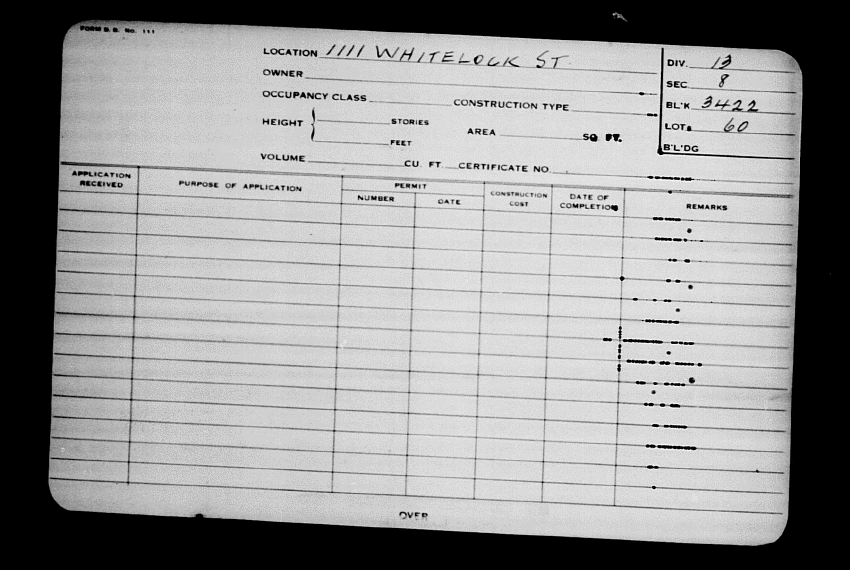 FORM B. B. No. 111
LOCATION 1111 WHITELOCK ST
OWNER
OCCUPANCY CLASS CONSTRUCTION TYPE
HEIGHT STORIES
FEET
AREA SQ FT.
VOLUME CU. FT. CERTIFICATE NO.
DIV. 13
SEC. 8
BL'K 3422
LOT 60
B'L'DG
APPLICATION RECEIVED
PURPOSE OF APPLICATION
PERMIT
NUMBER
DATE
CONSTRUCTION COST
DATE OF COMPLETION
REMARKS
OVER